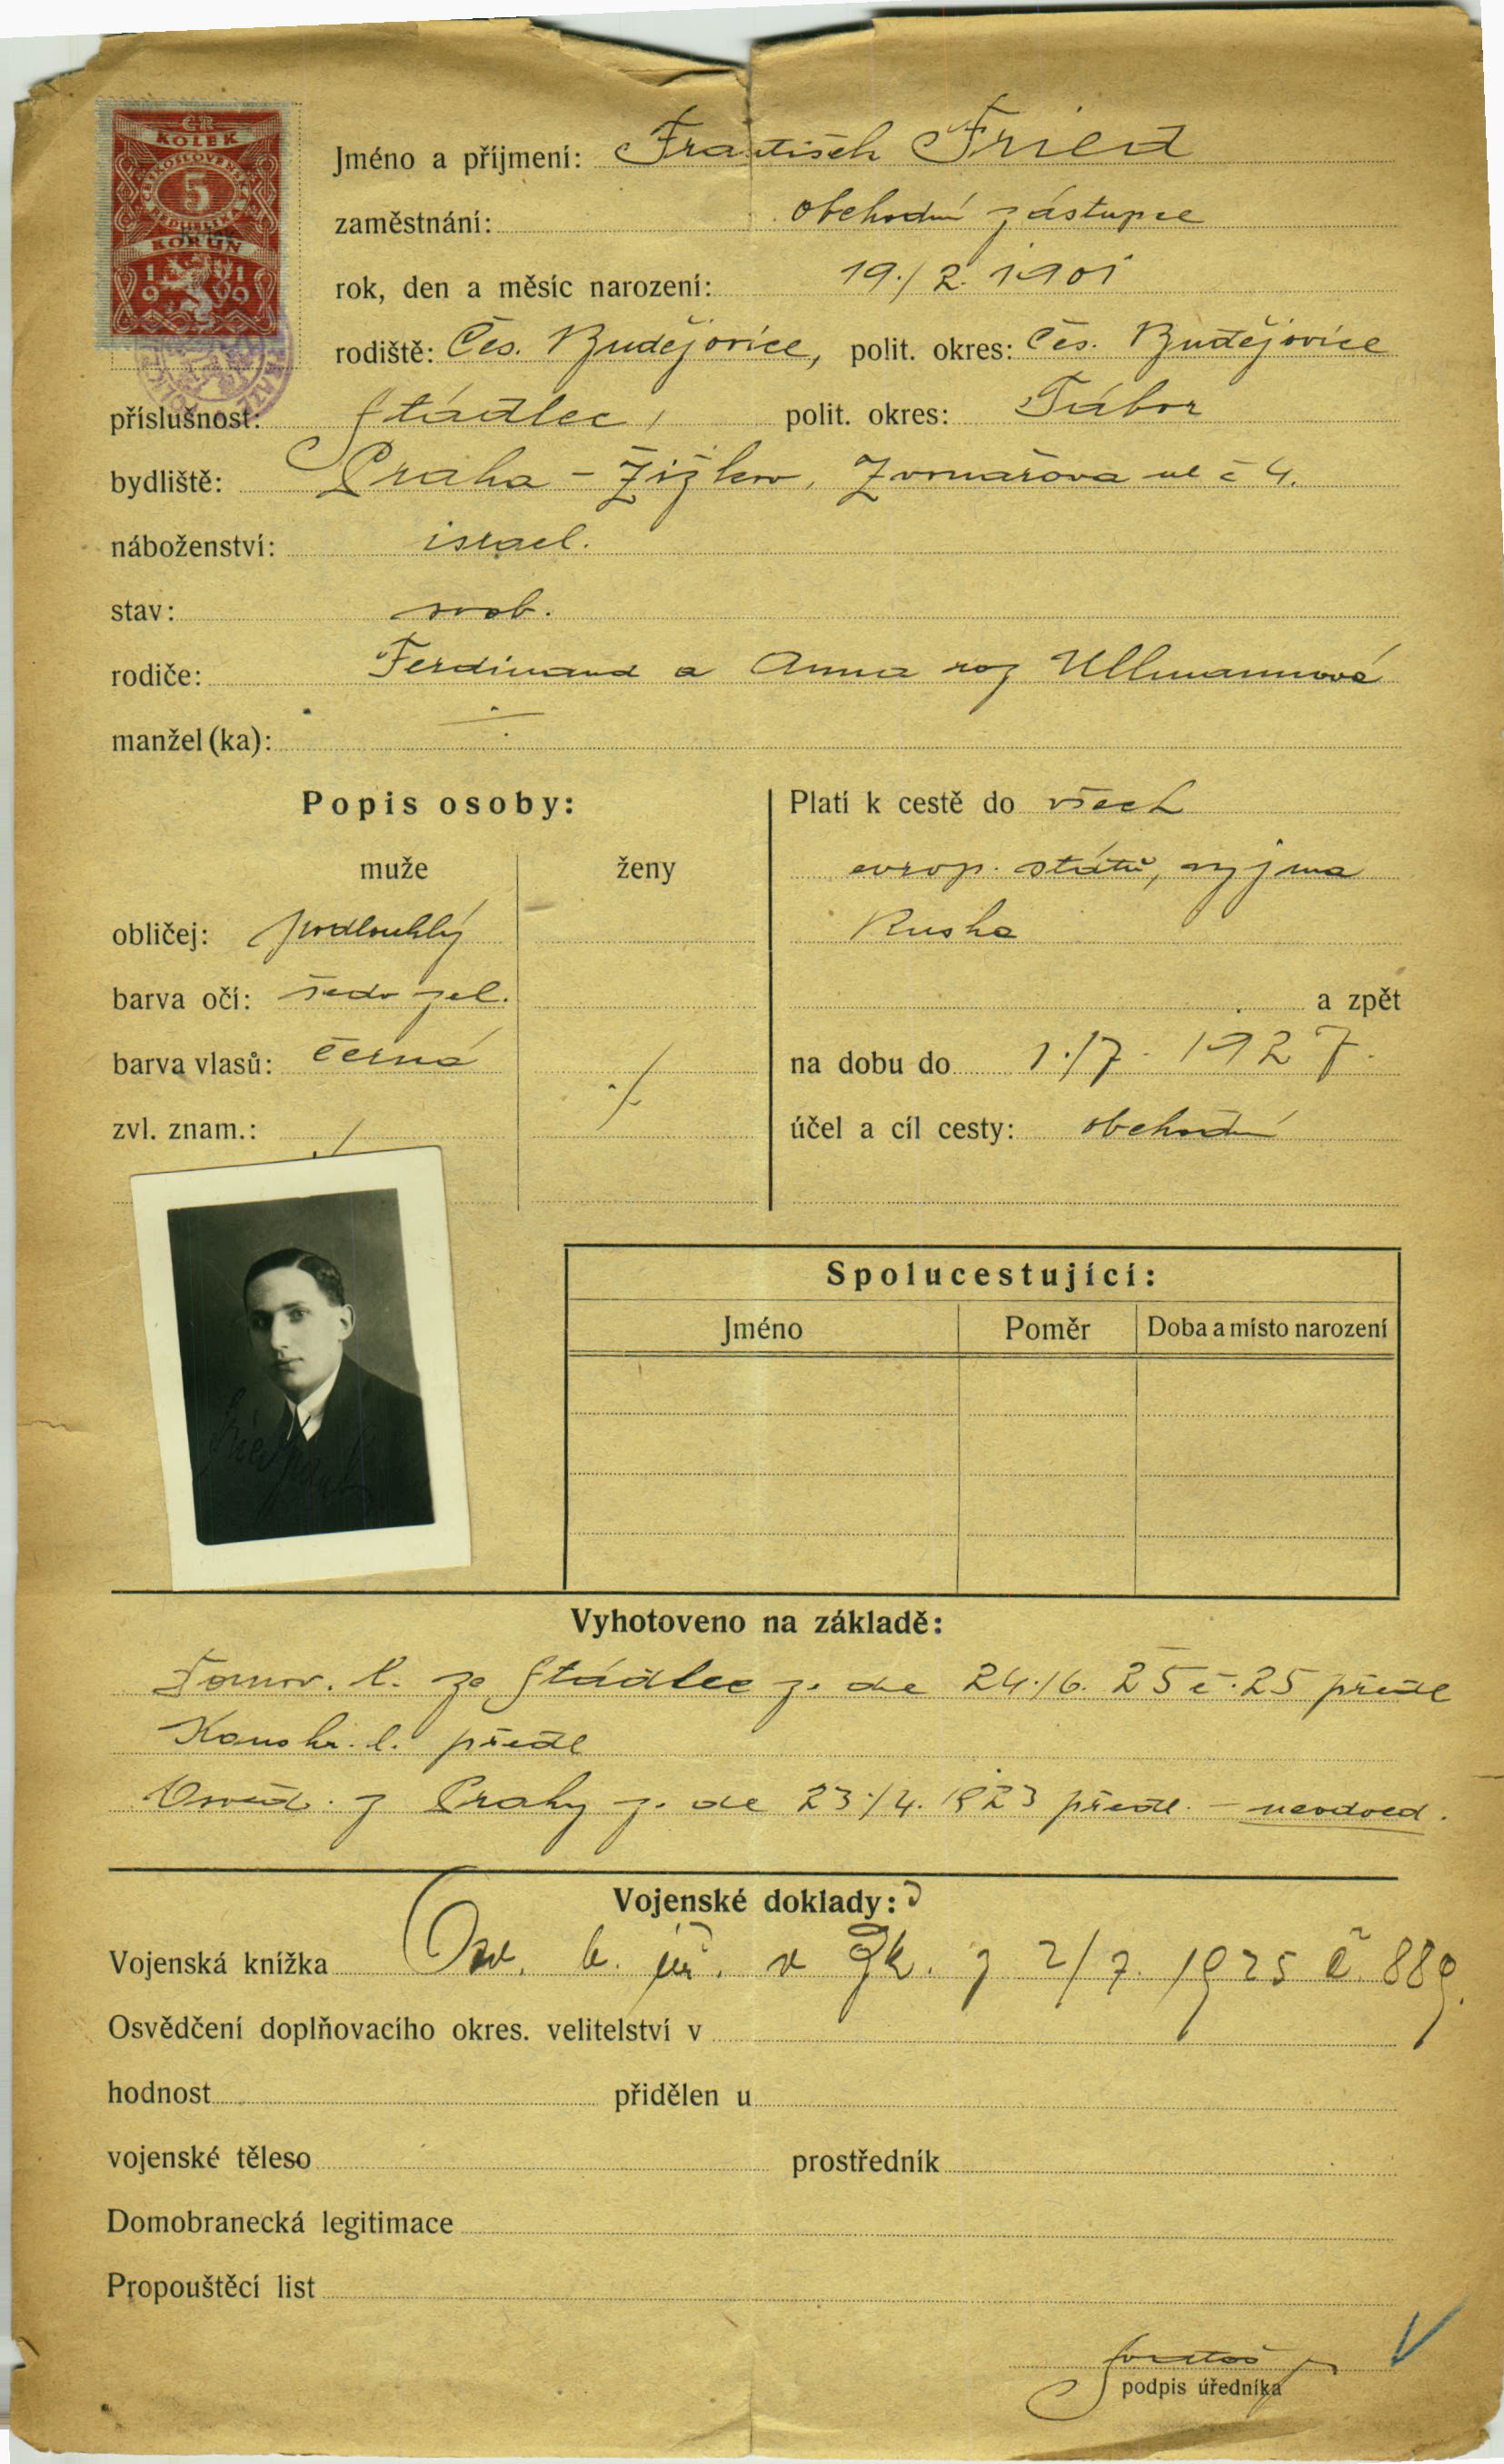 ČR
KOLEK
ČESKOSLOVENSKÁ
5
REPUBLIKA
KORUN
1919
Jméno a příjmení: František Fried
zaměstnání: obchodní zástupce
rok, den a měsíc narození: 19./2. 1901
rodiště: Čes. Budějovice, polit. okres: Čes. Budějovice
příslušnost: Stádlec, polit. okres: Tábor
bydliště: Praha - Žižkov, Zvonařova ul č 4.
náboženství: israel.
stav: svob.
rodiče: Ferdinand a Anna roz Ullmannová
manžel (ka): ÷
Popis osoby:
muže ženy
obličej: podlouhlý
barva očí: šedo zel.
barva vlasů: černá
zvl. znam.: ./.
Platí k cestě do všech
evrop. států, vyjma
Ruska
a zpět
na dobu do 1./7. 1927.
účel a cíl cesty: obchodní
Spolucestující:
Jméno Poměr Doba a místo narození
Vyhotoveno na základě:
Domov. l. ze Stádlec z. de 24./6. 25 č. 25 předl
Konskr. l. předl
Osvěd. z Prahy z. de 23./4. 1923 předl. - neodved.
Vojenské doklady:
Vojenská knížka Osv. b. úř. v Žk. z 2/7. 1925 č. 889.
Osvědčení doplňovacího okres. velitelství v
hodnost přidělen u
vojenské těleso prostředník
Domobranecká legitimace
Propouštěcí list
podpis úředníka